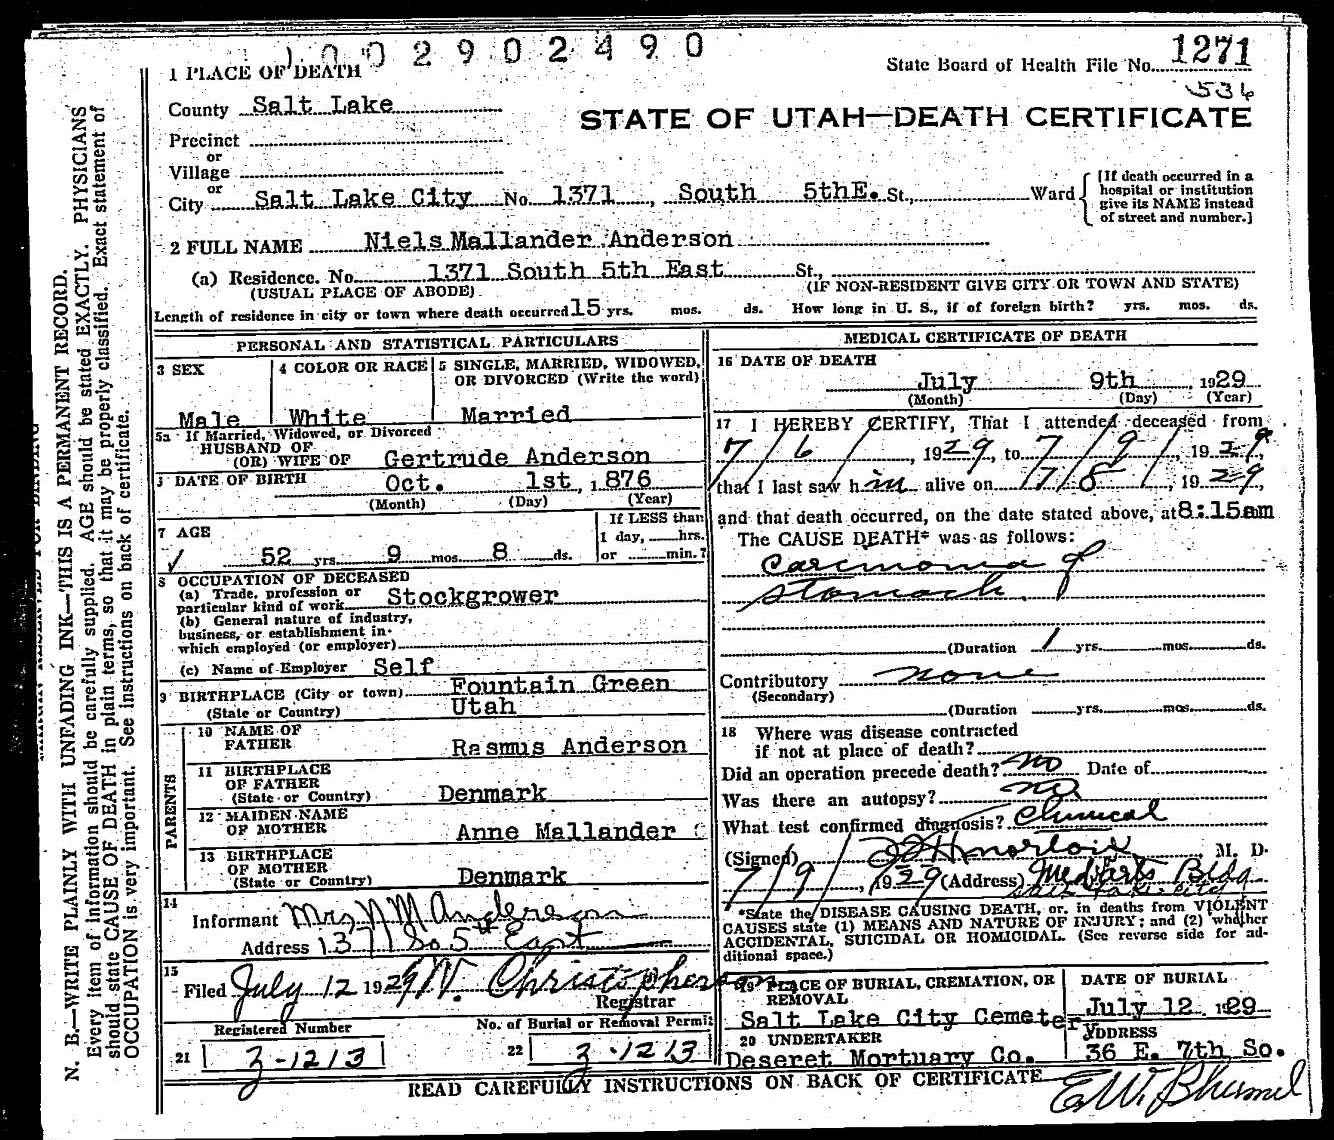 1002902490
State Board of Health File No. 1271
536
1 PLACE OF DEATH
County Salt Lake
STATE OF UTAH—DEATH CERTIFICATE
Precinct
or
Village
or
City Salt Lake City No. 1371, South 5thE. St., Ward
[If death occurred in a hospital or institution give its NAME instead of street and number.]
2 FULL NAME Niels Mallander Anderson
(a) Residence. No. 1371 South 5th East St.,
(USUAL PLACE OF ABODE) (IF NON-RESIDENT GIVE CITY OR TOWN AND STATE)
Length of residence in city or town where death occurred 15 yrs. mos. ds. How long in U. S., if of foreign birth? yrs. mos. ds.
PERSONAL AND STATISTICAL PARTICULARS
3 SEX
Male
4 COLOR OR RACE
White
5 SINGLE, MARRIED, WIDOWED,
OR DIVORCED (Write the word)
Married
5a If Married, Widowed, or Divorced
HUSBAND OF
(OR) WIFE OF Gertrude Anderson
DATE OF BIRTH Oct. 1st, 1876
(Month) (Day) (Year)
7 AGE
52 yrs. 9 mos. 8 ds.
If LESS than
1 day, hrs.
or min.?
8 OCCUPATION OF DECEASED
(a) Trade, profession or
particular kind of work Stockgrower
(b) General nature of industry,
business, or establishment in-
which employed (or employer)
(c) Name of Employer Self
9 BIRTHPLACE (City or town) Fountain Green
(State or Country) Utah
PARENTS
10 NAME OF
FATHER Rasmus Anderson
11 BIRTHPLACE
OF FATHER
(State or Country) Denmark
12 MAIDEN NAME
OF MOTHER Anne Mallander
13 BIRTHPLACE
OF MOTHER
(State or Country) Denmark
14
Informant Mrs N M Anderson
Address 1371 So 5th East
15
Filed July 12 1929 W. Christopherson
Registrar
Registered Number
21 3-1213
No. of Burial or Removal Permit
22 3-1213
MEDICAL CERTIFICATE OF DEATH
16 DATE OF DEATH
July 9th, 1929
(Month) (Day) (Year)
17 I HEREBY CERTIFY, That I attended deceased from
7/6/, 1929, to 7/9/, 1929,
that I last saw him alive on 7/8, 1929,
and that death occurred, on the date stated above, at 8:15am
The CAUSE DEATH* was as follows:
Carcinoma of
Stomach.
(Duration 1 yrs. mos. ds.
Contributory none
(Secondary)
(Duration yrs. mos. ds.
18 Where was disease contracted
if not at place of death?
Did an operation precede death? No Date of
Was there an autopsy? no
What test confirmed diagnosis? Clinical
(Signed) M. D.
7/9/, 1929 (Address) Med Arts Bldg
Salt Lake City
*State the DISEASE CAUSING DEATH, or. in deaths from VIOLENT
CAUSES state (1) MEANS AND NATURE OF INJURY; and (2) whether
ACCIDENTAL, SUICIDAL OR HOMICIDAL. (See reverse side for ad-
ditional space.)
19 PLACE OF BURIAL, CREMATION, OR
REMOVAL
Salt Lake City Cemeter
DATE OF BURIAL
July 12 1929
20 UNDERTAKER
Deseret Mortuary Co.
ADDRESS
36 E. 7th So.
READ CAREFULLY INSTRUCTIONS ON BACK OF CERTIFICATE
E.W.
N. B.—WRITE PLAINLY WITH UNFADING INK—THIS IS A PERMANENT RECORD.
Every item of information should be carefully supplied. AGE should be stated EXACTLY. PHYSICIANS
should state CAUSE OF DEATH in plain terms, so that it may be properly classified. Exact statement of
OCCUPATION is very important. See instructions on back of certificate.